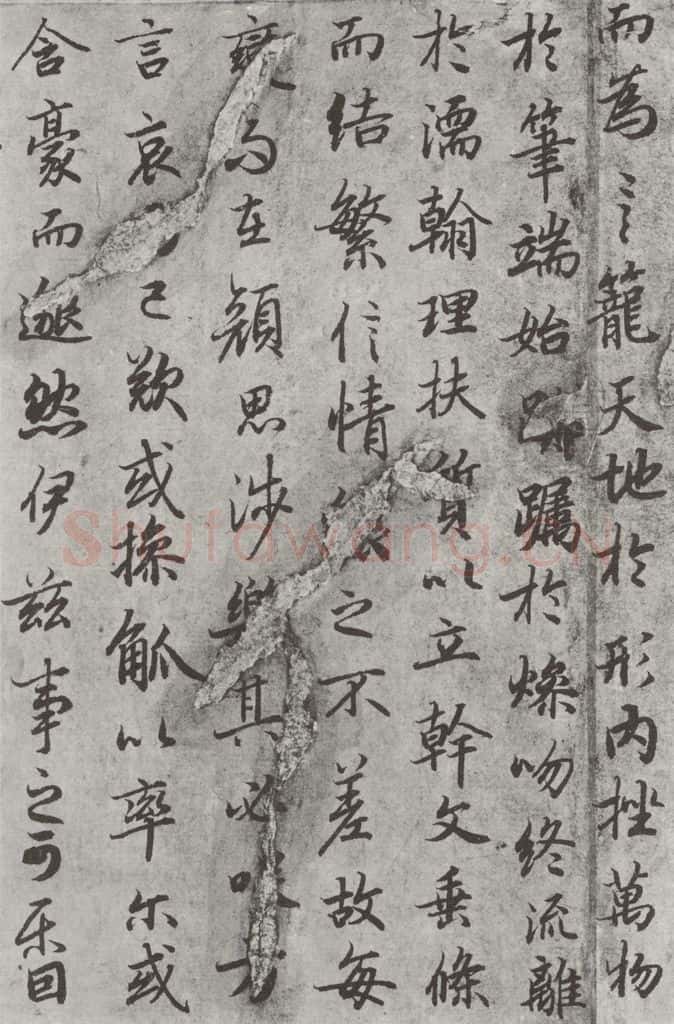 而為言籠天地於形内挫萬物
於筆端始躑躅於燥吻終流離
於濡翰理扶質以立幹文垂條
而結繁信情之不差故每
變而在顔思涉樂其必咲方
言哀已歎或操觚以率尔或
含豪而邈然伊茲事之可乐固
Shufawang.CN